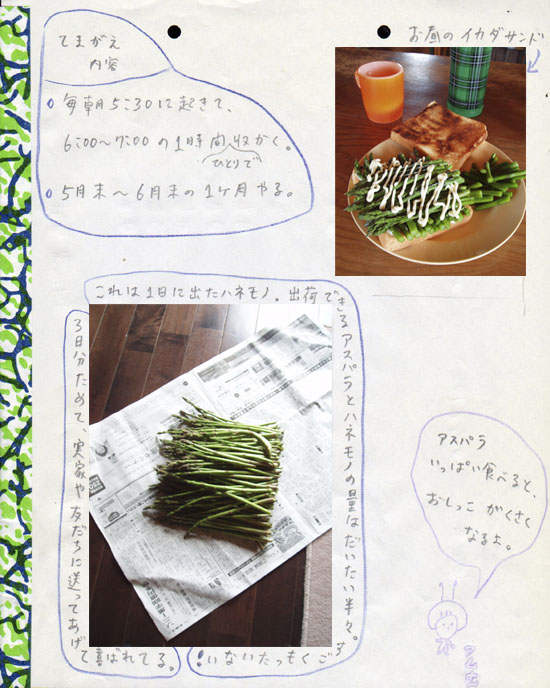 お昼のイカダサンド
てまがえ
内容
毎朝5:30に起きて、
6:00〜7:00の1時間収かく。
ひとりで
5月末〜6月末の1ヶ月やる。
これは1日に出たハネモノ。出荷できる
アスパラとハネモノの量はだいたい半々。
すごくもったいない!
3日分ためて、実家や友だちに送ってあげ
て喜ばれてる。
アスパラ
いっぱい食べると、
おしっこがくさく
なるよ。